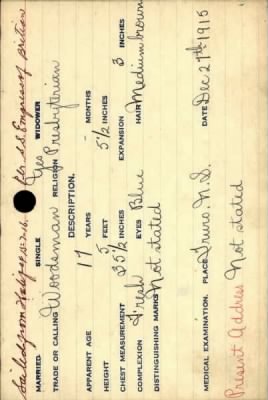 Sailed from Halifax per S.S. Empress of Britain
MARRIED SINGLE Yes WIDOWER
TRADE OR CALLING Woodsman RELIGION Presbyterian
DESCRIPTION.
APPARENT AGE 17 YEARS MONTHS
HEIGHT 5 FEET 5 1/2 INCHES
CHEST MEASUREMENT 35 1/2 INCHES EXPANSION 3 INCHES
COMPLEXION Fresh EYES Blue HAIR Medium brown
DISTINGUISHING MARKS Not stated
MEDICAL EXAMINATION. PLACE Truro. N.S. DATE Dec 29th 1915
Present Address Not stated